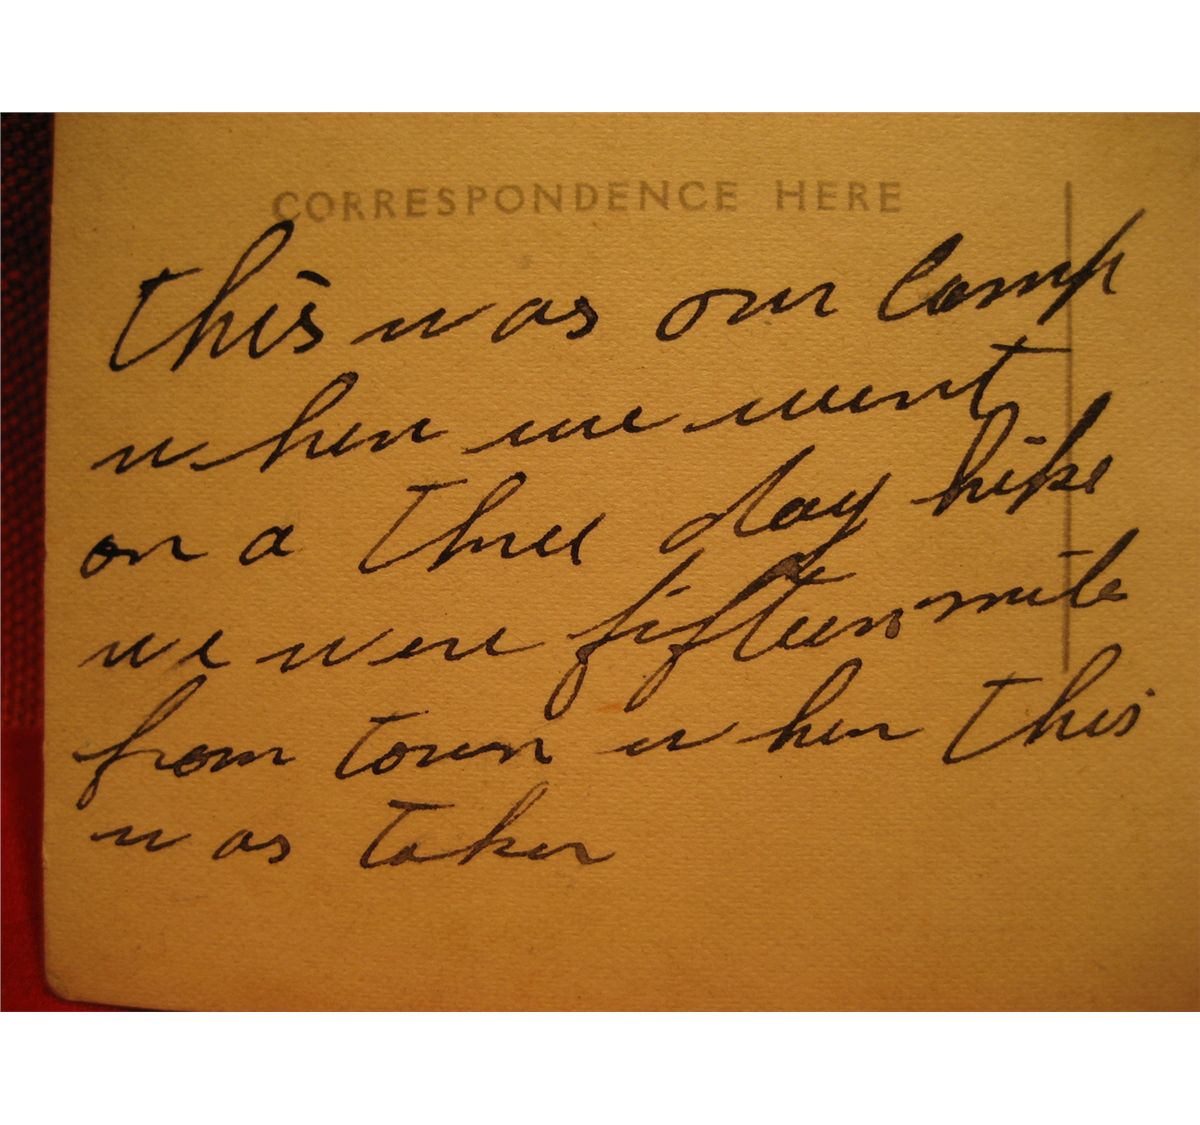 CORRESPONDENCE HERE
this was our camp
when we went
on a three day hike
we were fifteen mile
from town when this
was taken